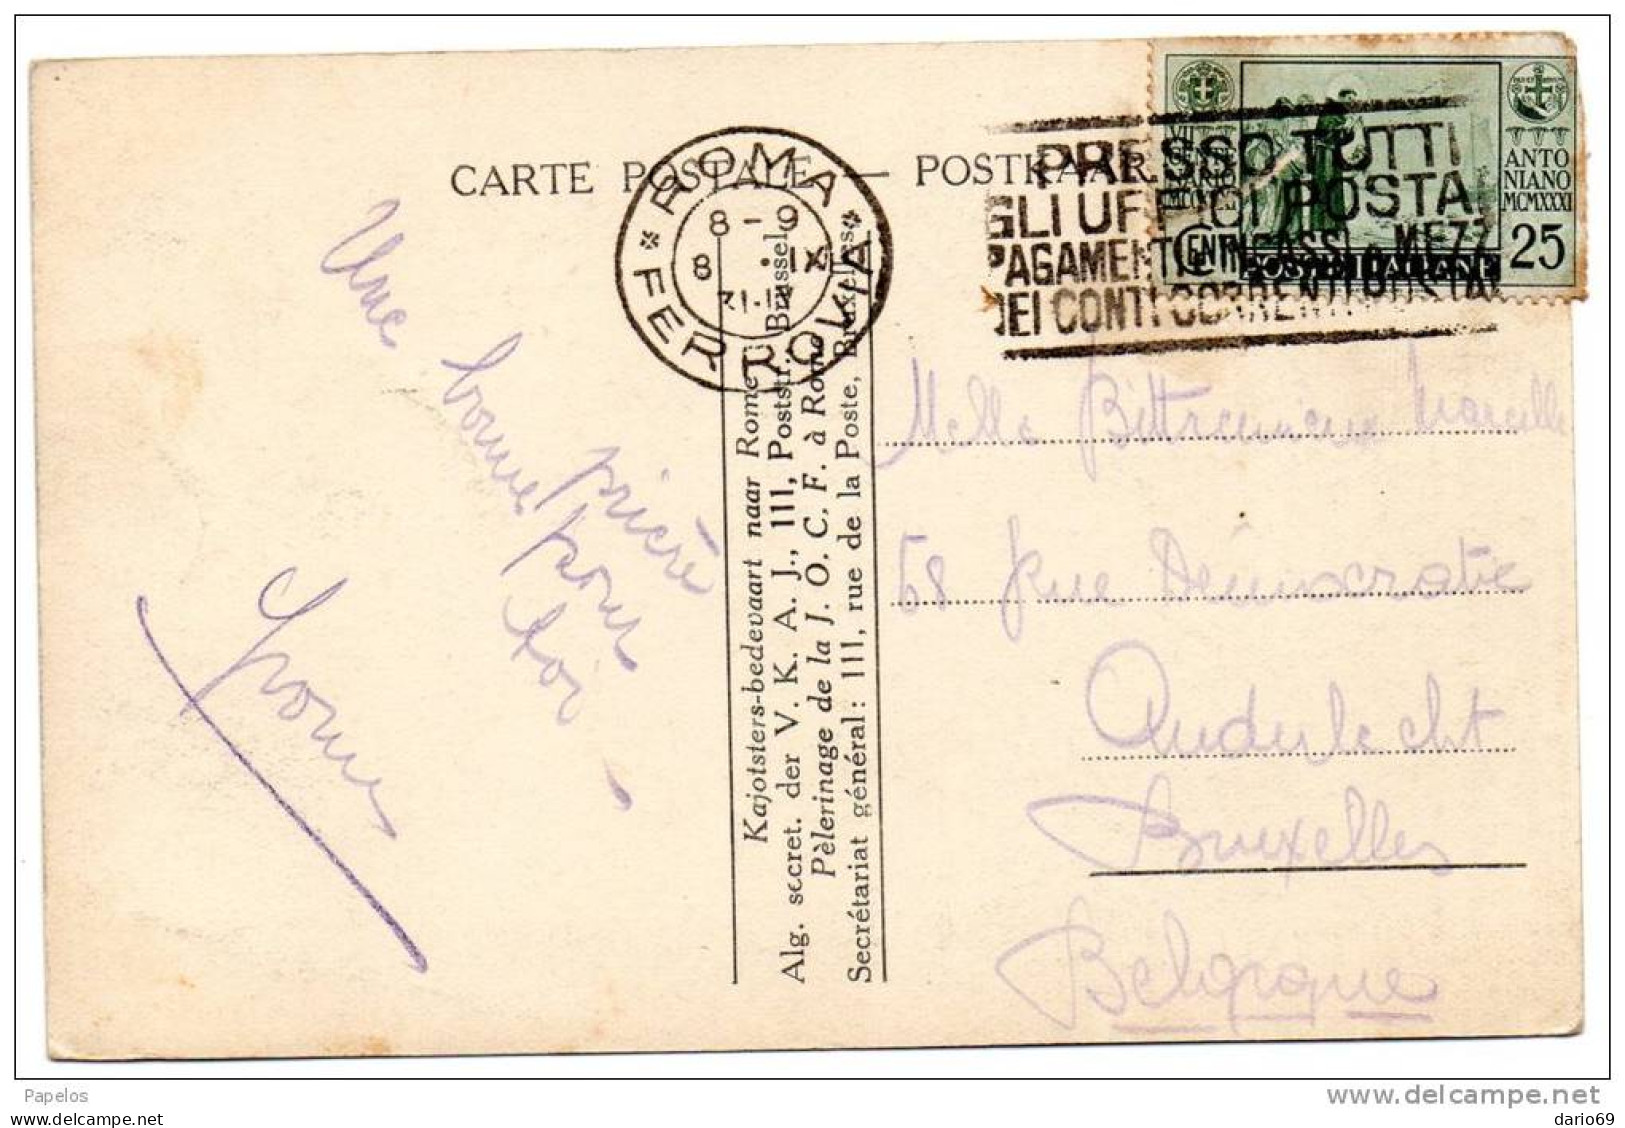 CARTE POSTALE — POSTKAAR
ROMA
FERROVIA
8 - 9
8 . IX
31 . IX
PRESSO TUTTI
GLI UFFICI POSTAL
PAGAMENTI E INCASSI A MEZZ
DEI CONTI CORRENTI POSTAL
VII
ANTO
NIANO
MCMXXXI
CENT
25
POSTE ITALIANE
Une bonne
prière
pour
toi
Yvonne
Kajotsters-bedevaart naar Rome
Alg. secret. der V. K. A. J., 111, Poststr., Brussel
Pèlerinage de la J. O. C. F. à Rome
Secrétariat général: 111, rue de la Poste, Bruxelles
Melle Marcelle
68 Rue Démocratie
Anderlecht
Bruxelles
Belgique
Papelos
www.delcampe.net
dario69